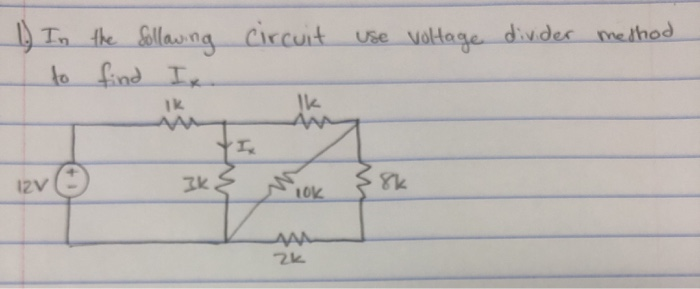 1.) In the following circuit use voltage divider method
to find Ix.
1k 1k
Ix
12V + - 3k 10k 8k
2k